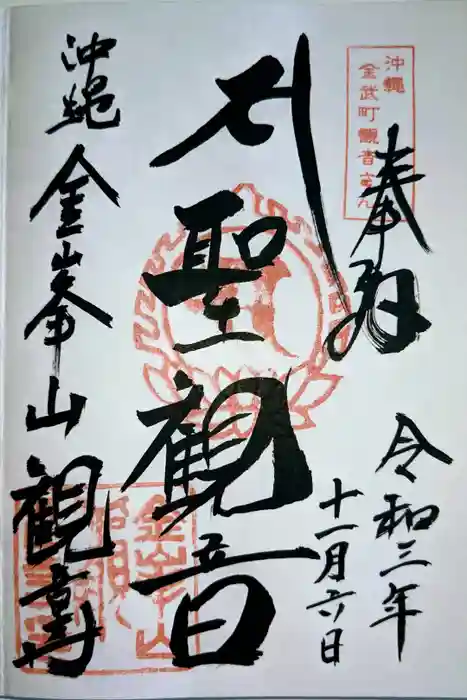 沖縄
金武町観音さん
奉拝
令和三年
十一月六日
聖観音
沖縄 金峯山 観音寺